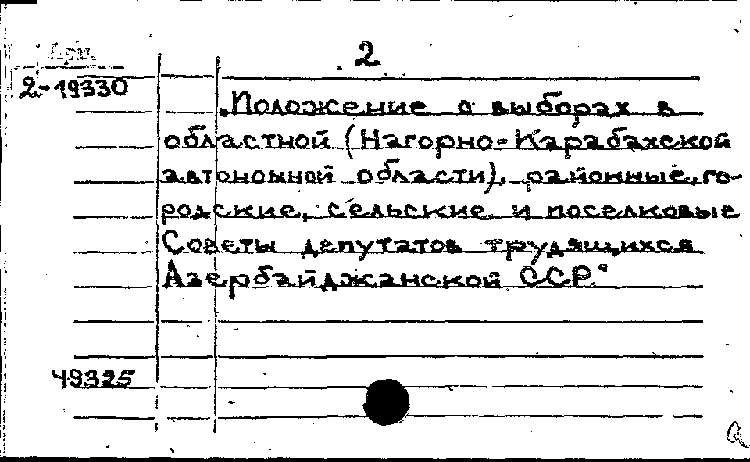 2
2-19330
„Положение о выборах в
областной (Нагорно-Карабахской
автономной области), районные, го-
родские, сельские и поселковые
Советы депутатов трудящихся
Азербайджанской ССР"
49325